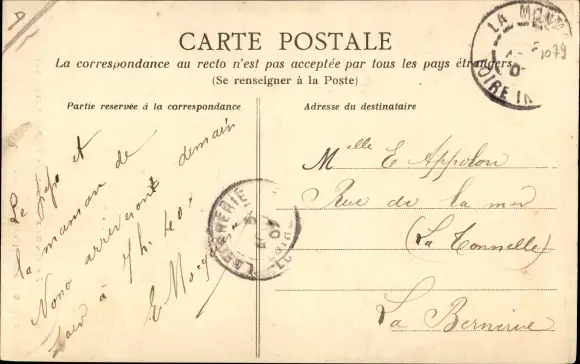 D
CARTE POSTALE
La correspondance au recto n'est pas acceptée par tous les pays étrangers
(Se renseigner à la Poste)
Partie reservée à la correspondance
Le papa et
la maman de
Nono arriveront demain
soir à 7 h. 40.
E.
Adresse du destinataire
Melle E Appolon
Rue de la mer
(La Tonnelle)
La Bernerie
LA
07
LOIRE IN
1079
LA BERNERIE
07